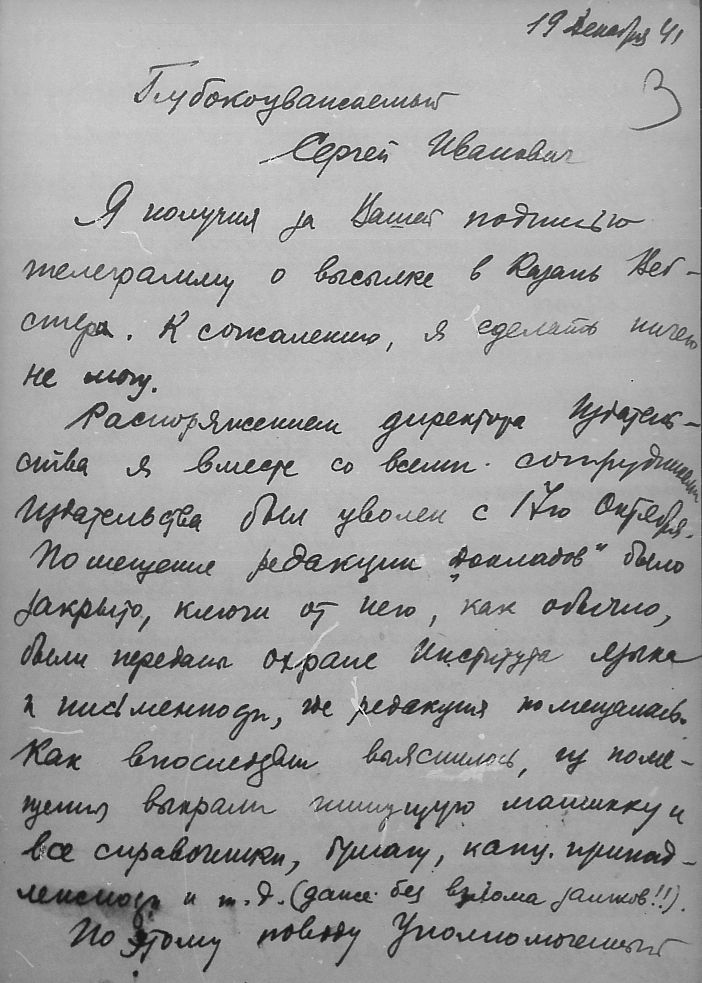 19 Декабря 41
3
Глубокоуважаемый
Сергей Иванович
Я получил за Вашей подписью
телеграмму о высылке в Казань Веб-
стера. К сожалению, я сделать ничего
не могу.
Распоряжением директора Издатель-
ства я вместе со всеми сотрудниками
Издательства был уволен с 17го Октября.
Помещение редакции „Докладов" было
закрыто, ключи от него, как обычно,
были переданы охране Института языка
и письменности, где редакция помещалась.
Как впоследствии выяснилось, из поме-
щения выкрали пишущую машинку и
все справочники, бумагу, канц. принад-
лежности и т.д. (даже без взлома замков!!).
По этому поводу Уполномоченный